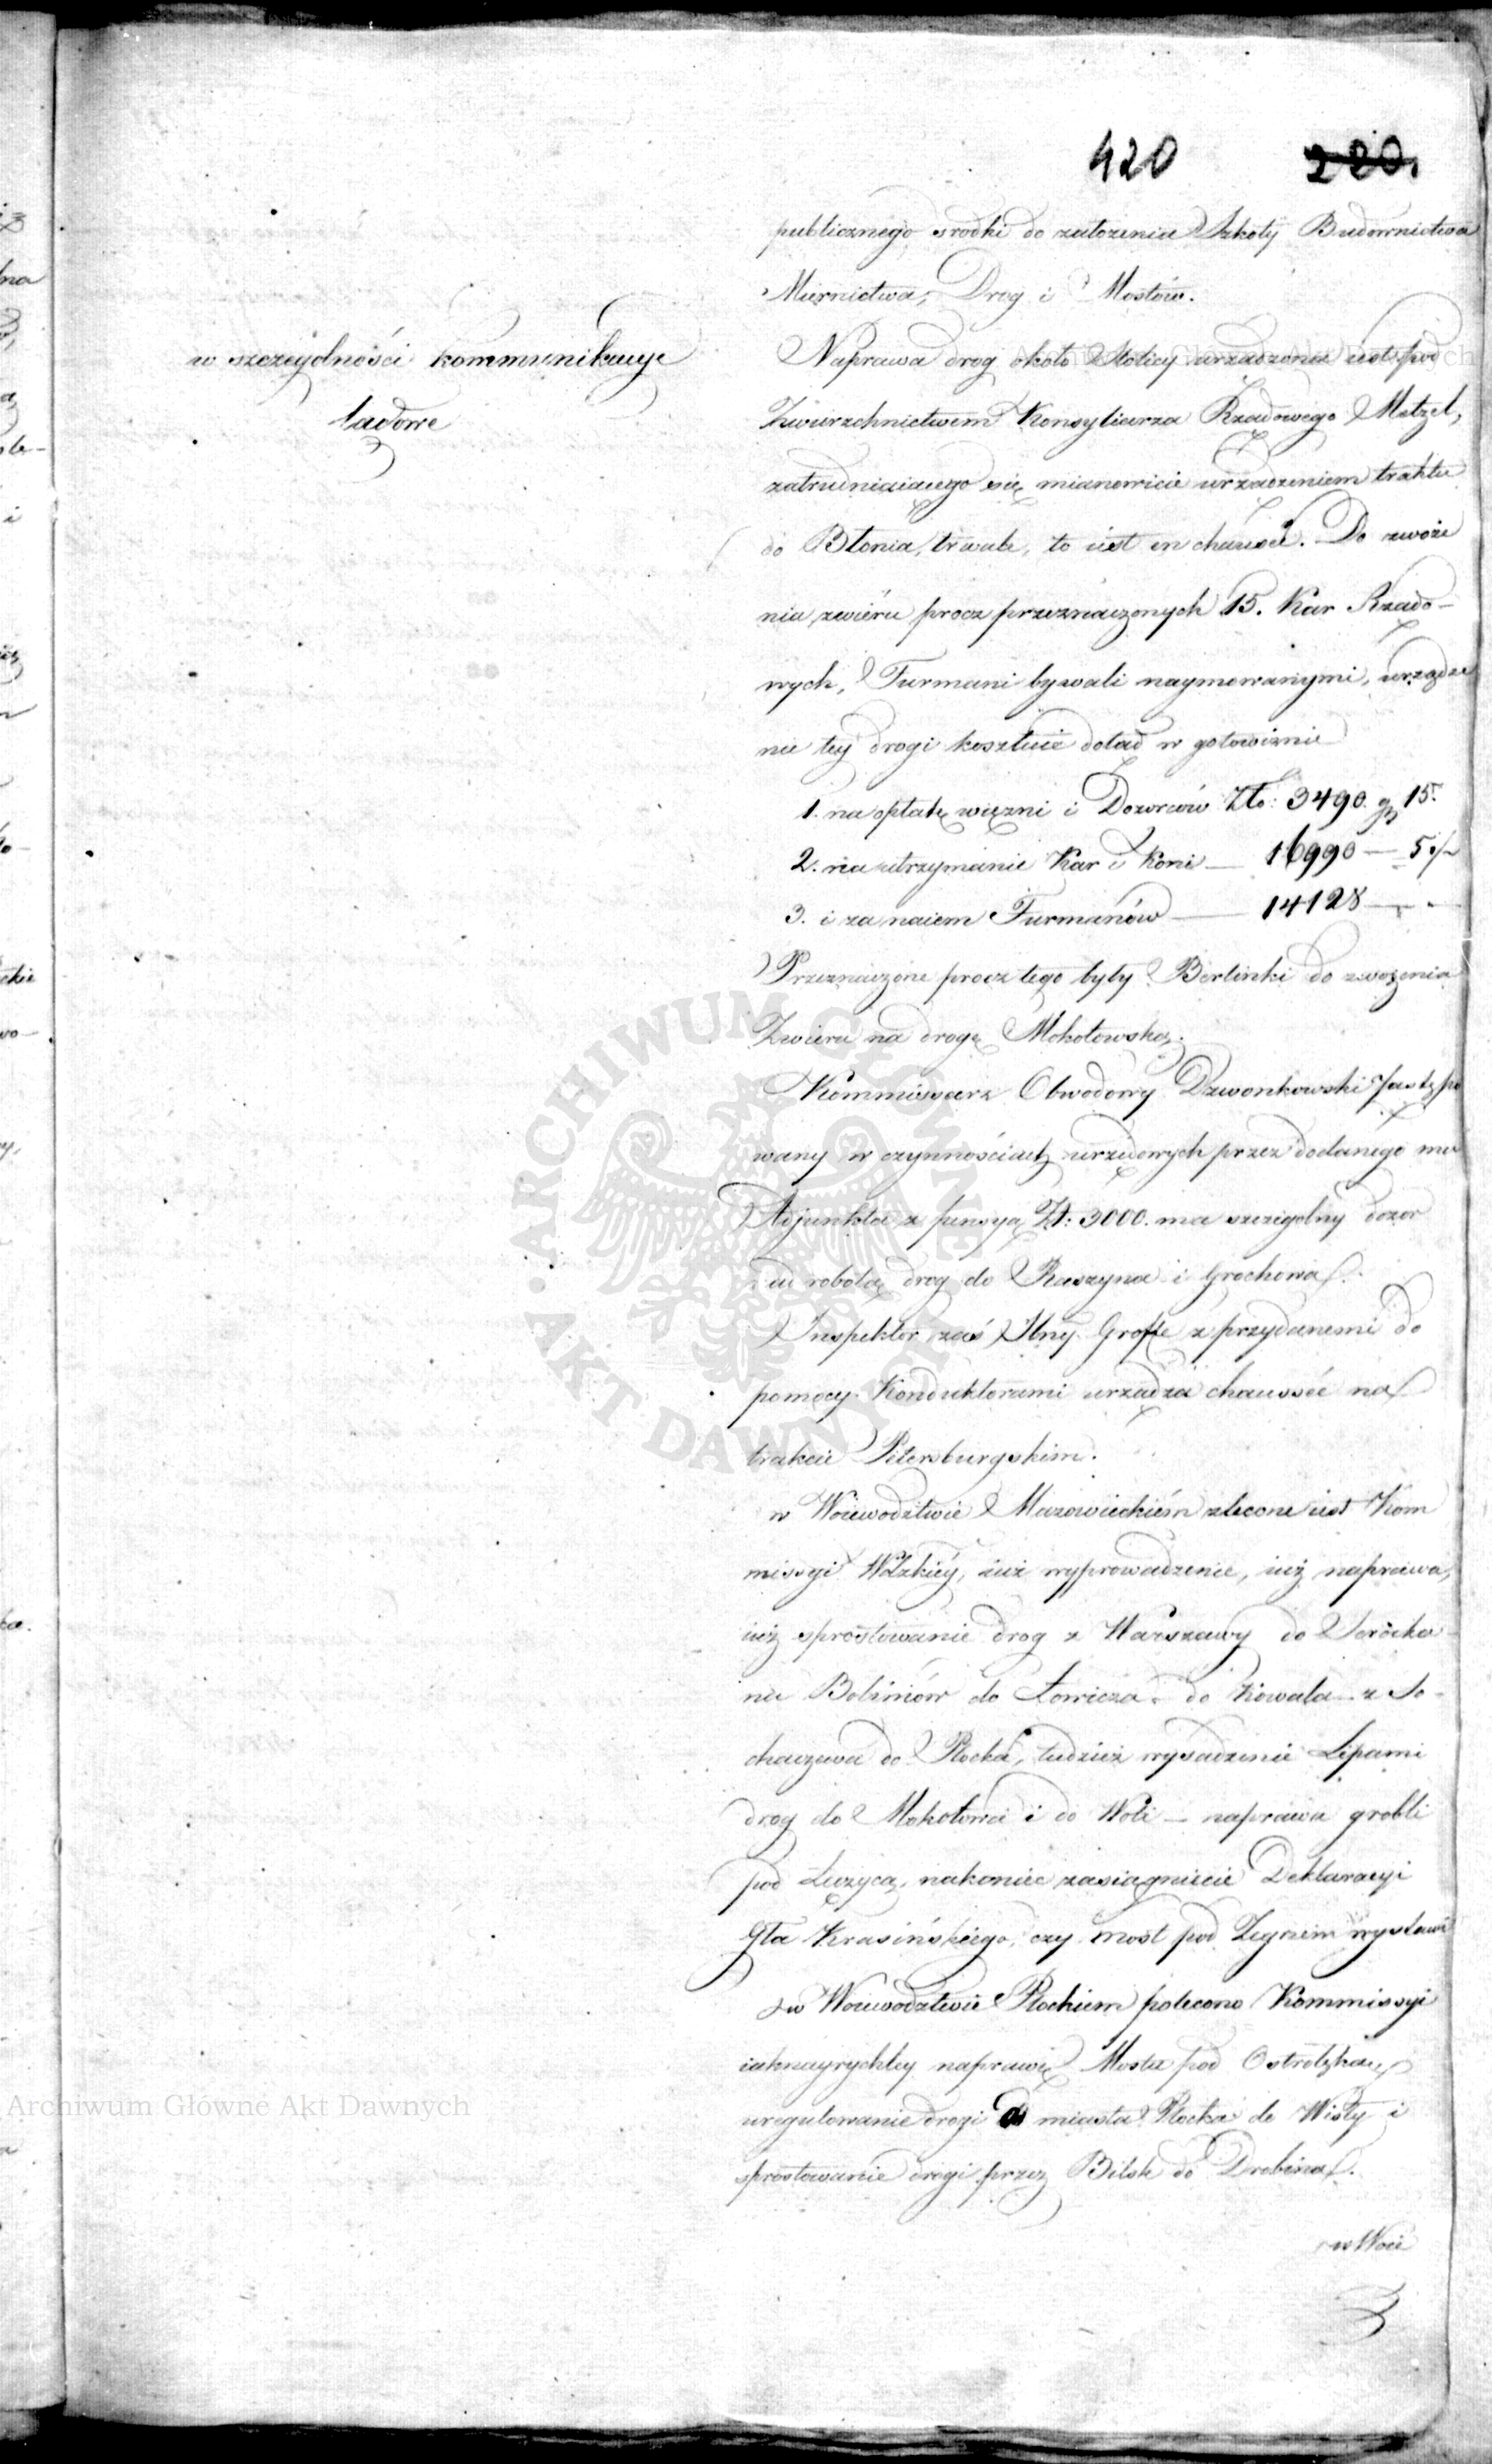 420 220.
publicznego srodki do założenia Szkoły Budownictwa
Miernictwa, Drog i Mostów.
w szczególności kommunikacye
lądowe
Naprawa drog około Stolicy urządzona iest pod
Zwierzchnictwem Konsyliarza Rządowego Metzel,
zatrudniaiącego się mianowicie urządzeniem traktu
do Błonia, trwale, to iest en chaussée. Do zwoże
nia zwiéru procz przeznaczonych 15. Kar Rządo-
wych, Furmani bywali naymowanymi, urządze
nie tey drogi kosztuie dotąd w gotowiźnie
1. na opłatę więzni i Dozorców Zło: 3490. gr 15.
2. na utrzymanie Kar i Koni — 16990 — 5 1/2
3. i za naiem Furmanów — 14128 — -
Przeznaczone procz tego były Berlinki do zwożenia
Zwieru na drogę Mokotowską.
Kommissarz Obwodowy Dzwonkowski zastępo
wany w czynnościach urzędowych przez dodanego mu
Adjunkta z pensyą Zł: 3000. ma szczegolny dozor
nad robotą drog do Raszyna i Grochowa.
Inspektor zaś Jlny Groffe z przydanemi do
pomocy Konduktorami urządza chaussée na
trakcie Petersburgskim.
w Woiewodztwie Mazowieckiém zlecone iest Kom
missyi Wdzkiéy, iuż wyprowadzenie, iuż naprawa,
iuż sprostowanie drog z Warszawy do Serocka
na Bolimów do Łowicza, do Kowala — z So-
chaczewa do Płocka, tudzież wysadzenie Lipami
drog do Mokotowa i do Woli — naprawa grobli
pod Łużycą, nakoniec zasiągnięcie Deklaracyi
Gła Krasińskiego, czy most pod Zegrzem wystawi
w Woiewodztwie Płockiem polecono Kommissyi
iaknayrychley naprawię Mostu pod Ostrołęką,
uregulowanie drogi od miasta Płocka do Wisły i
sprostowanie drogi przez Bilsk do Drobina.
w Woie
ARCHIWUM GŁÓWNE
AKT DAWNYCH
Archiwum Główne Akt Dawnych